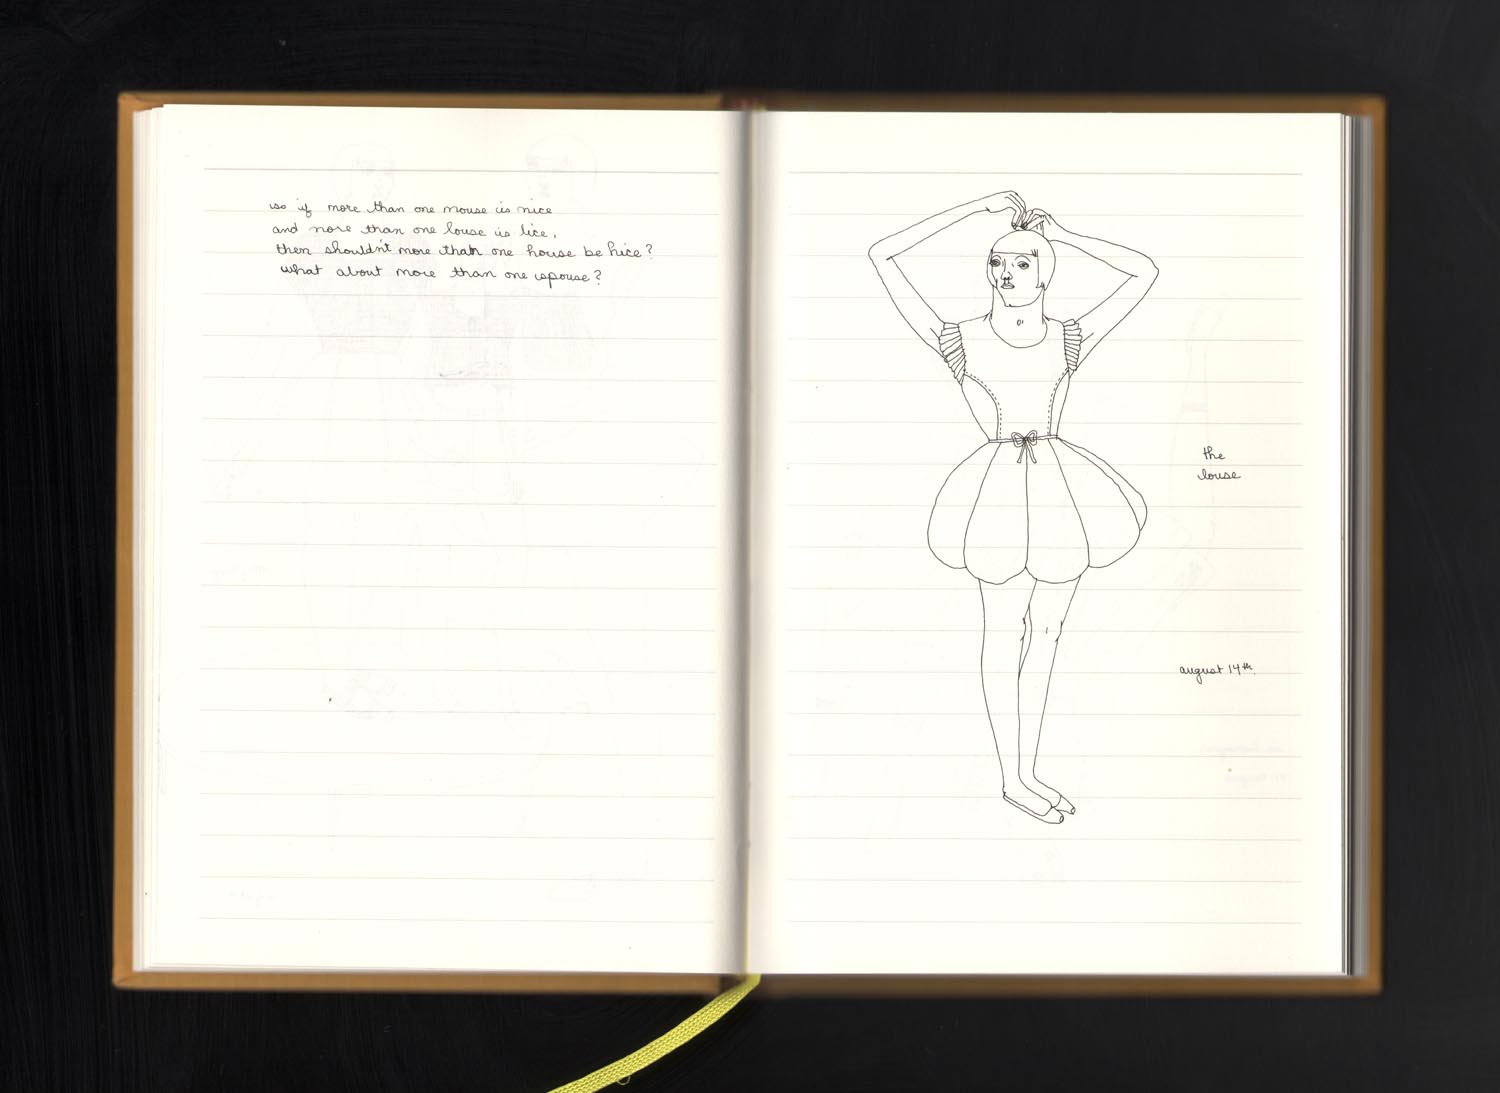 so if more than one mouse is nice
and more than one louse is lice,
then shouldn't more than one house be hice?
what about more than one spouse?
the
louse
august 14th.